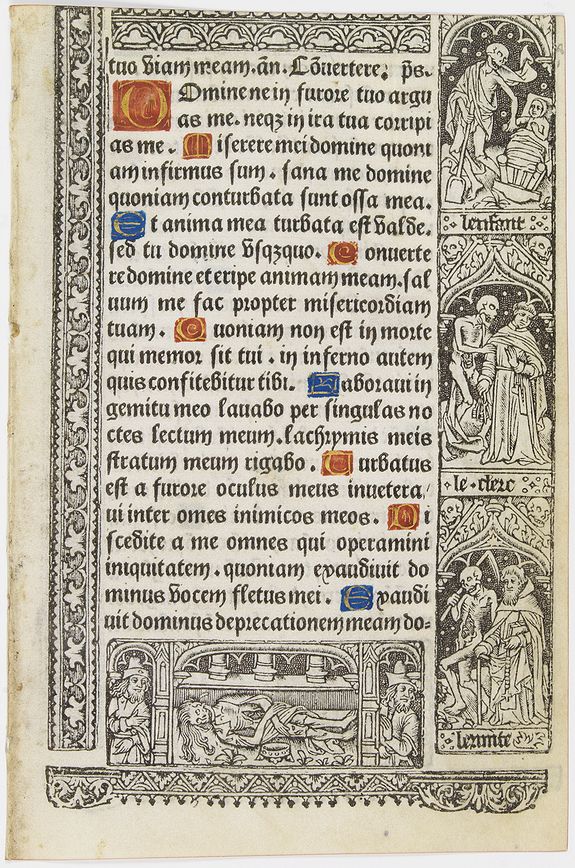 tuo viam meam. an̄. Cōuertere. ps.
Domine ne in furore tuo argu
as me. neqz in ira tua corripi
as me. Miserere mei domine quoni
am infirmus sum. sana me domine
quoniam conturbata sunt ossa mea.
Et anima mea turbata est valde.
sed tu domine vsqzquo. Conuerte
re domine et eripe animam meam. sal
uum me fac propter misericordiam
tuam. Quoniam non est in morte
qui memor sit tui. in inferno autem
quis confitebitur tibi. Laboraui in
gemitu meo lauabo per singulas no
ctes lectum meum. lachrymis meis
stratum meum rigabo. Turbatus
est a furore oculus meus inuetera/
ui inter omēs inimicos meos. Di
scedite a me omnes qui operamini
iniquitatem. quoniam exaudiuit do
minus vocem fletus mei. Exaudi
uit dominus deprecationem meam do-
lenfant
le clerc
lermite